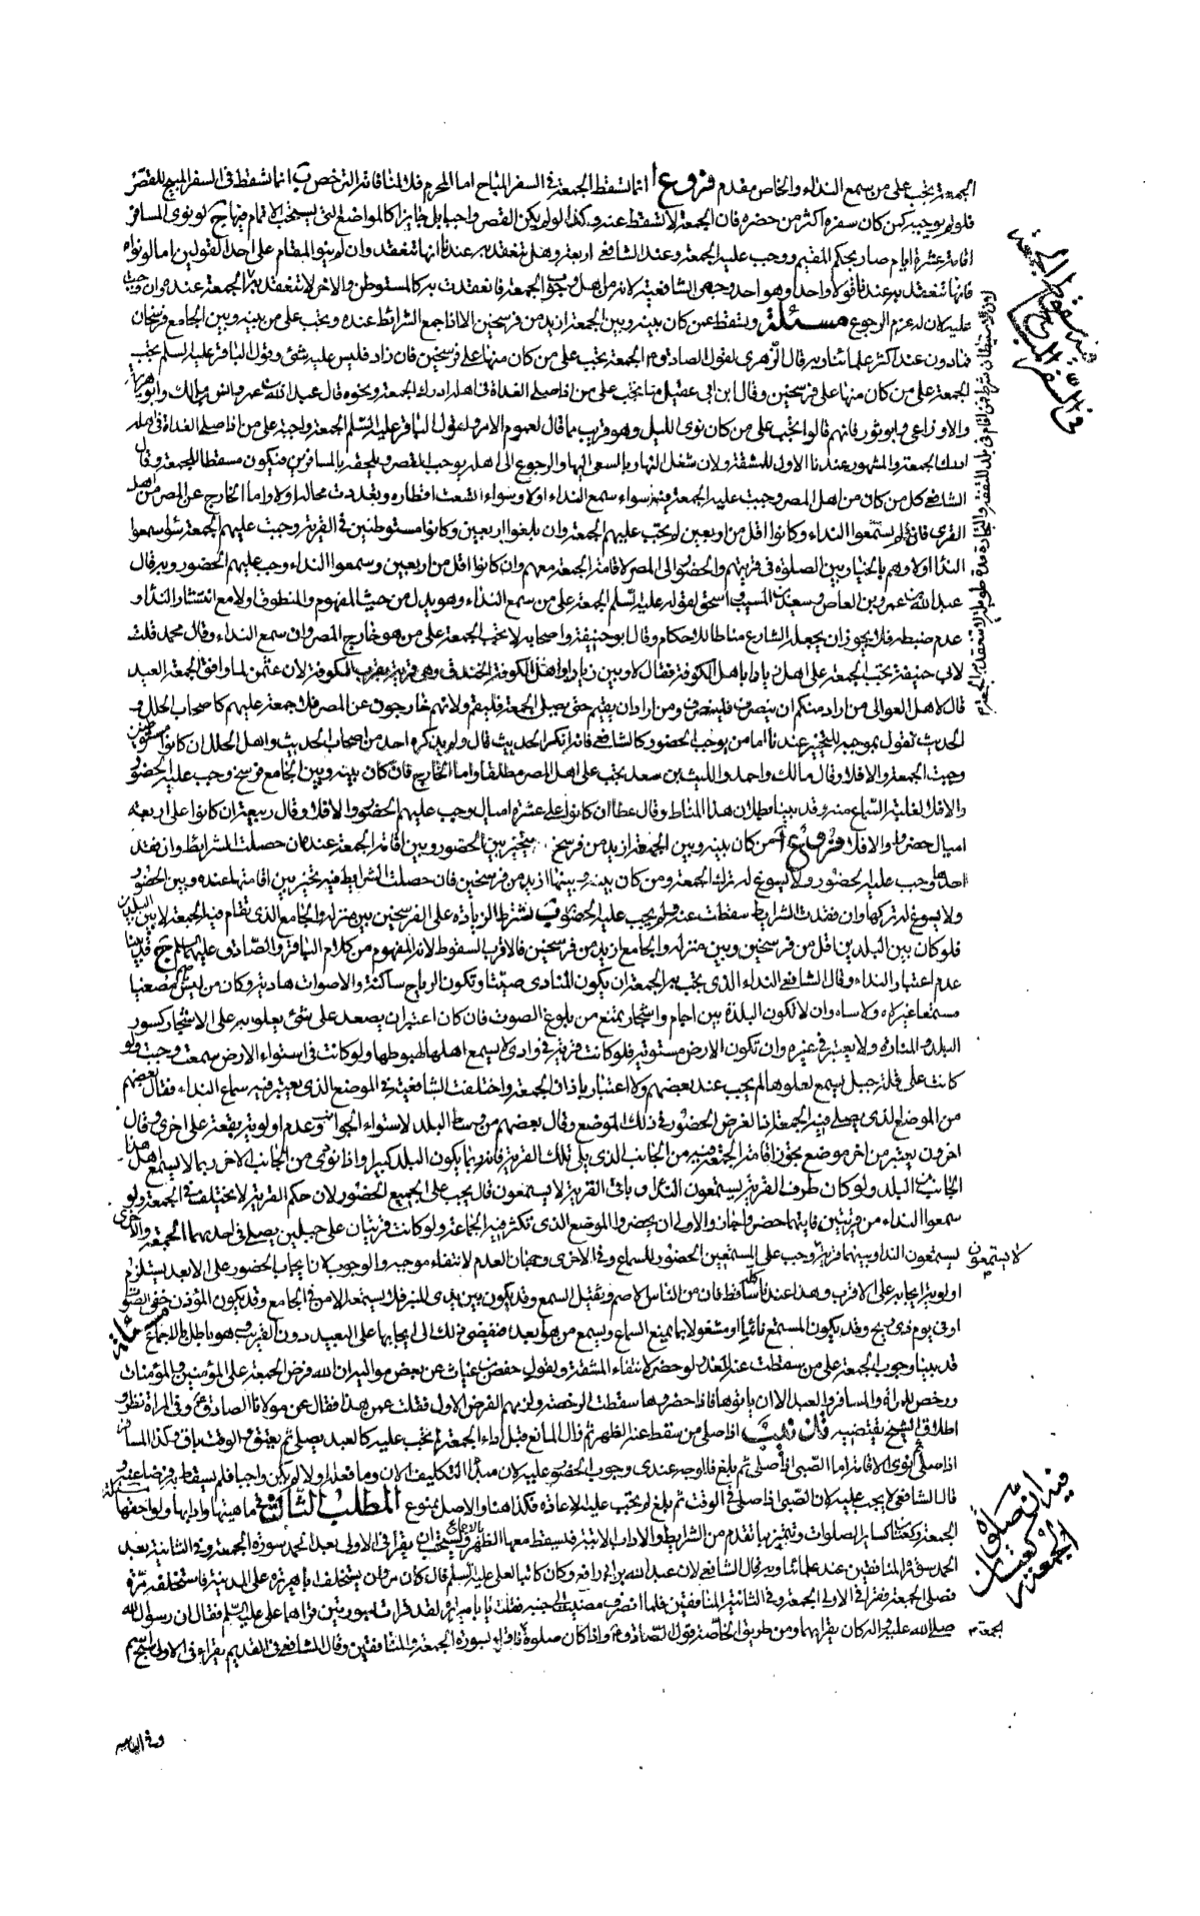 الجمعة يجب على من يسمع النداء والخاص مقدم فروع ا انما تسقط الجمعة في السفر المباح اما المحرم فلا لمنافاته الترخص ب انما تسقط في السفر المبيح للقصر
فلو لم يوجبه كمن كان سفره اكثر من حضره فان الجمعة لا تسقط عنه وكذا لو لم يكن القصر واجبا بل جايزا كالمواضع التي يستحب الاتمام فيها ج لو نوى المسافر
اقامة عشرة ايام صار بحكم المقيم ووجب عليه الجمعة وعند الشافعي اربعة وهل تنعقد به عندنا انها تنعقد وان لم ينو المقام على احد القولين اما لو نواه
فانها تنعقد به عندنا قولا واحدا وهو احد وجهي الشافعية لانه من اهل وجوب الجمعة فانعقدت به كالمستوطن والاخر لا تنعقد به الجمعة عنده وان وجبت
عليه لان له عزم الرجوع مسئلة ويسقط عمن كان بينه وبين الجمعة ازيد من فرسخين الا اذا جمع الشرائط عنده ويجب على من بينه وبين الجامع فرسخان
فما دون عند اكثر علمائنا وبه قال الزهري لقول الصادق ع الجمعة يجب على من كان منها على فرسخين فان زاد فليس عليه شئ وقول الباقر عليه السلم يجب
الجمعة على من كان منها على فرسخين وقال ابن ابي عقيل منا يجب على من اذا صلى الغداة في اهله ادرك الجمعة ونحوه قال عبد الله بن عمر وانس بن مالك وابو هريرة
والاوزاعي وابو ثور فانهم قالوا يجب على من كان نوى لليل وهو قريب مما قال لعموم الامر ولقول الباقر عليه السلم الجمعة واجبة على من اذا صلى الغداة في اهله
ادرك الجمعة والمشهور عندنا الاول للمشقة ولان شغل النهار بالسعي اليها والرجوع الى اهله يوجب القصر ويلحقه بالمسافرين فيكون مسقطا للجمعة وقال
الشافعي كل من كان من اهل المصر وجبت عليه الجمعة فيه سواء سمع النداء او لا وسواء اتسعت اقطاره وتعددت محاله او لا واما الخارج عن المصر من اهل
القرى فان لم يسمعوا النداء وكانوا اقل من اربعين لم يجب عليهم الجمعة وان بلغوا اربعين وكانوا مستوطنين في القرية وجبت عليهم الجمعة سواء سمعوا
النداء او لا وهم بالخيار بين الصلوة في قريتهم والحضور الى المصر لاقامة الجمعة معهم وان كانوا اقل من اربعين وسمعوا النداء وجب عليهم الحضور وبه قال
عبد الله بن عمرو بن العاص وسعيد بن المسيب واسحق لقوله عليه السلم الجمعة على من سمع النداء وهو يدل من حيث المفهوم والمنطوق اولا مع انتشار النداء و
عدم ضبطه فلا يجوز ان يجعله الشارع مناطا للاحكام وقال ابو حنيفة واصحابه لا يجب الجمعة على من هو خارج المصر وان سمع النداء وقال محمد قلت
لابي حنيفة يجب الجمعة على اهل زبارا باهل الكوفة فقال لا وبين زبارا واهل الكوفة الخندق وهي قرية بقرب الكوفة لان عثمن لما وافق الجمعة العيد
قال لاهل العوالي من اراد منكم ان ينصرف فلينصرف ومن اراد ان يقيم حتى يصلي الجمعة فليقم ولانهم خارجون عن المصر فلا جمعة عليهم كاصحاب الحلل و
الحديث نقول بموجبه للتخيير عندنا اما من يوجب الحضور كالشافعي فانه انكر الحديث قال ولم يذكره احد من اصحاب الحديث واهل الحلل ان كانوا مستوطنين
وجبت الجمعة والا فلا وقال مالك واحمد والليث بن سعد يجب على اهل المصر مطلقا واما الخارج فان كان بينه وبين الجامع فرسخ وجب عليه الحضور
والا فلا لغلبة السماع منه وقد بينا بطلان هذا المناط وقال عطا ان كانوا على عشرة اميال وجب عليهم الحضور والا فلا وقال ربيعة ان كانوا على اربعة
اميال حضروا والا فلا فروع ا من كان بينه وبين الجمعة ازيد من فرسخ يتخير بين الحضور وبين اقامة الجمعة عنده ان حصلت الشرائط وان فقد
احدها وجب عليه الحضور ولا يسوغ له ترك الجمعة ومن كان بينه وبينها ازيد من فرسخين فان حصلت الشرايط فيه تخير بين اقامتها عنده وبين الحضور
ولا يسوغ له تركها وان فقدت الشرايط سقطت عنه ولم يجب عليه الحضور ب يشترط الزيادة على الفرسخين بين منزله والجامع الذي تقام فيه الجمعة لا بين البلدين
فلو كان بين البلدين اقل من فرسخين وبين منزله والجامع ازيد من فرسخين فالاقرب السقوط لانه المفهوم من كلام الباقر والصادق عليهما السلم ج قد بينا
عدم اعتبار النداء وقال الشافعي النداء الذي يجب به الجمعة ان يكون المنادي صيتا وتكون الرياح ساكنة والاصوات هادية وكان من ليس باصم مصغيا
مستمعا غير لاه ولا ساه وان لا تكون البلدة بين اجام واشجار يمنع من بلوغ الصوت فان كان اعتبر ان يصعد على شئ يعلو به على الاشجار كسور
البلد والمنارة ولا يعتبر في غيره وان تكون الارض مستوية فلو كانت قرية في وادي لا يسمع اهلها لهبوطها ولو كانت في استواء الارض سمعت وجبت ولو
كانت على قلة جبل يسمع لعلوها لم يجب عند بعضهم ولا اعتبار باذان الجمعة واختلفت الشافعية في الموضع الذي يعتبر فيه سماع النداء فقال بعضهم
من الموضع الذي يصلي فيه الجمعة اذ الغرض الحضور في ذلك الموضع وقال بعضهم من وسط البلد لاستواء الجوانب وعدم اولوية بقعة على اخرى وقال
اخرون يعتبر من اخر موضع يجوز اقامة الجمعة فيه من الجانب الذي يلي تلك القرية فانه ربما يكون البلد كبيرا واذا نودي من الجانب الاخر ربما لا يسمع اهل هذا
الجانب من البلد ولو كان طرف القرية يسمعون النداء وباقي القرية لا يسمعون قال يجب على الجميع الحضور لان حكم القرية لا يختلف في الجمعة ولو
سمعوا النداء من قريتين فايتهما حضروا جاز والاولى ان يحضروا الموضع الذي تكثر فيه الجماعة ولو كانت قريتان على جبلين يصلي في احديهما الجمعة والاخرى
يسمعون النداء وبينهما قرية لا يسمعون وجب على المستمعين الحضور للسماع وفي الاخرى وجهان العدم لانتفاء موجبه والوجوب لان ايجاب الحضور على الابعد يستلزم
اولوية ايجابه على الاقرب وهذا عندنا كله ساقط فان من الناس الاصم وثقيل السمع وقد يكون بين يدي المنبر فلا يسمعه الا من في الجامع وقد يكون المؤذن خفي الصوت
او في يوم ذي ريح وقد يكون المستمع نائما او مشغولا بما يمنع السماع ويسمع من هو ابعد فيفضي ذلك الى ايجابها على البعيد دون القريب وهو باطل بالاجماع مسئلة
قد بينا وجوب الجمعة على من سقطت عنه للعذر لو حضر لانتفاء المشقة ولقول حفص بن غياث عن بعض مواليه ان الله فرض الجمعة على المؤمنين والمؤمنات
ورخص للمراة والمسافر والعبد الا ان ياتوها فاذا حضروها سقطت الرخصة ولزمهم الفرض الاول فقلت عمن هذا فقال عن مولانا الصادق ع وفي المراة نظر و
اطلاق الشيخ يقتضيه فان تذنيب اذا صلى من سقط عنه الظهر ثم زال المانع قبل اداء الجمعة لم يجب عليه كالعبد يصلي ثم يعتق والوقت باق وكذا المسافر
اذا صلى ثم نوى الاقامة اما الصبي اذا صلى ثم بلغ فالاوجه عندي وجوب الحضور عليه لان مبدا التكليف الان وما فعله اولا لم يكن واجبا فلم يسقط به فرضا عنه و
قال الشافعي لا يجب عليه لان الصبي اذا صلى في الوقت ثم بلغ لم يجب عليه الاعادة فكذا هنا والاصل ممنوع المطلب الثالث في ماهيتها وادابها ولواحقها مسئلة
الجمعة ركعتان كساير الصلوات وتتميز بما تقدم من الشرايط والاداب الاتية وقد يسقط معها الظهر بالاجماع ويستحب ان يقرا في الاولى بعد الحمد سورة الجمعة وفي الثانية بعد
الحمد سورة المنافقين عند علمائنا وبه قال الشافعي لان عبد الله بن ابي رافع وكان كاتبا لعلي عليه السلم قال كان مروان يستخلف ابا هريرة على المدينة فاستخلفه مرة
فصلى الجمعة فقرا في الاولى الجمعة وفي الثانية المنافقين فلما انصرف مضيت الى جنبه فقلت يا ابا هريرة لقد قرات بسورتين قراهما علي عليه السلم فقال ان رسول الله
صلى الله عليه واله كان يقرا بهما ومن طريق الخاصة قول الصادق ع واذا كان صلوة الجمعة فاقرا بسورة الجمعة والمنافقين وقال الشافعي في القديم يقراء في الاولى سبح اسم
وفي الثانية
لا يسمعون
الجمعة
فيه ان صلوة
الجمعة ركعتان